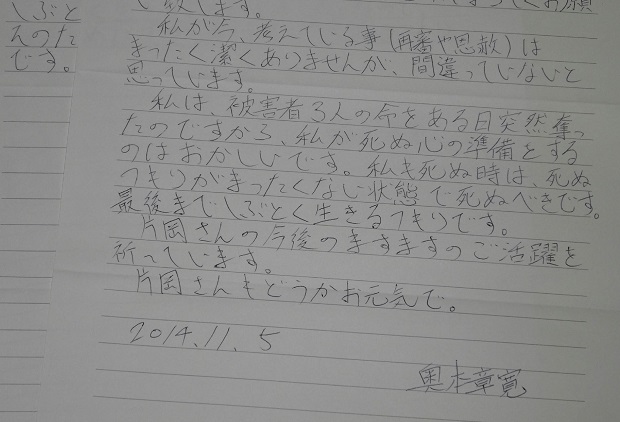 しぶと
えのた
です。
致します。
私が今、考えている事(再審や恩赦)は
まったく潔くありませんが、間違っていないと
思っています。
私は、被害者3人の命をある日突然奪っ
たのですから、私が死ぬ心の準備をする
のはおかしいです。私も死ぬ時は、死ぬ
つもりがまったくない状態で死ぬべきです。
最後までしぶとく生きるつもりです。
片岡さんの今後のますますのご活躍を
祈っています。
片岡さんもどうかお元気で。
2014.11.5
奥本章寛